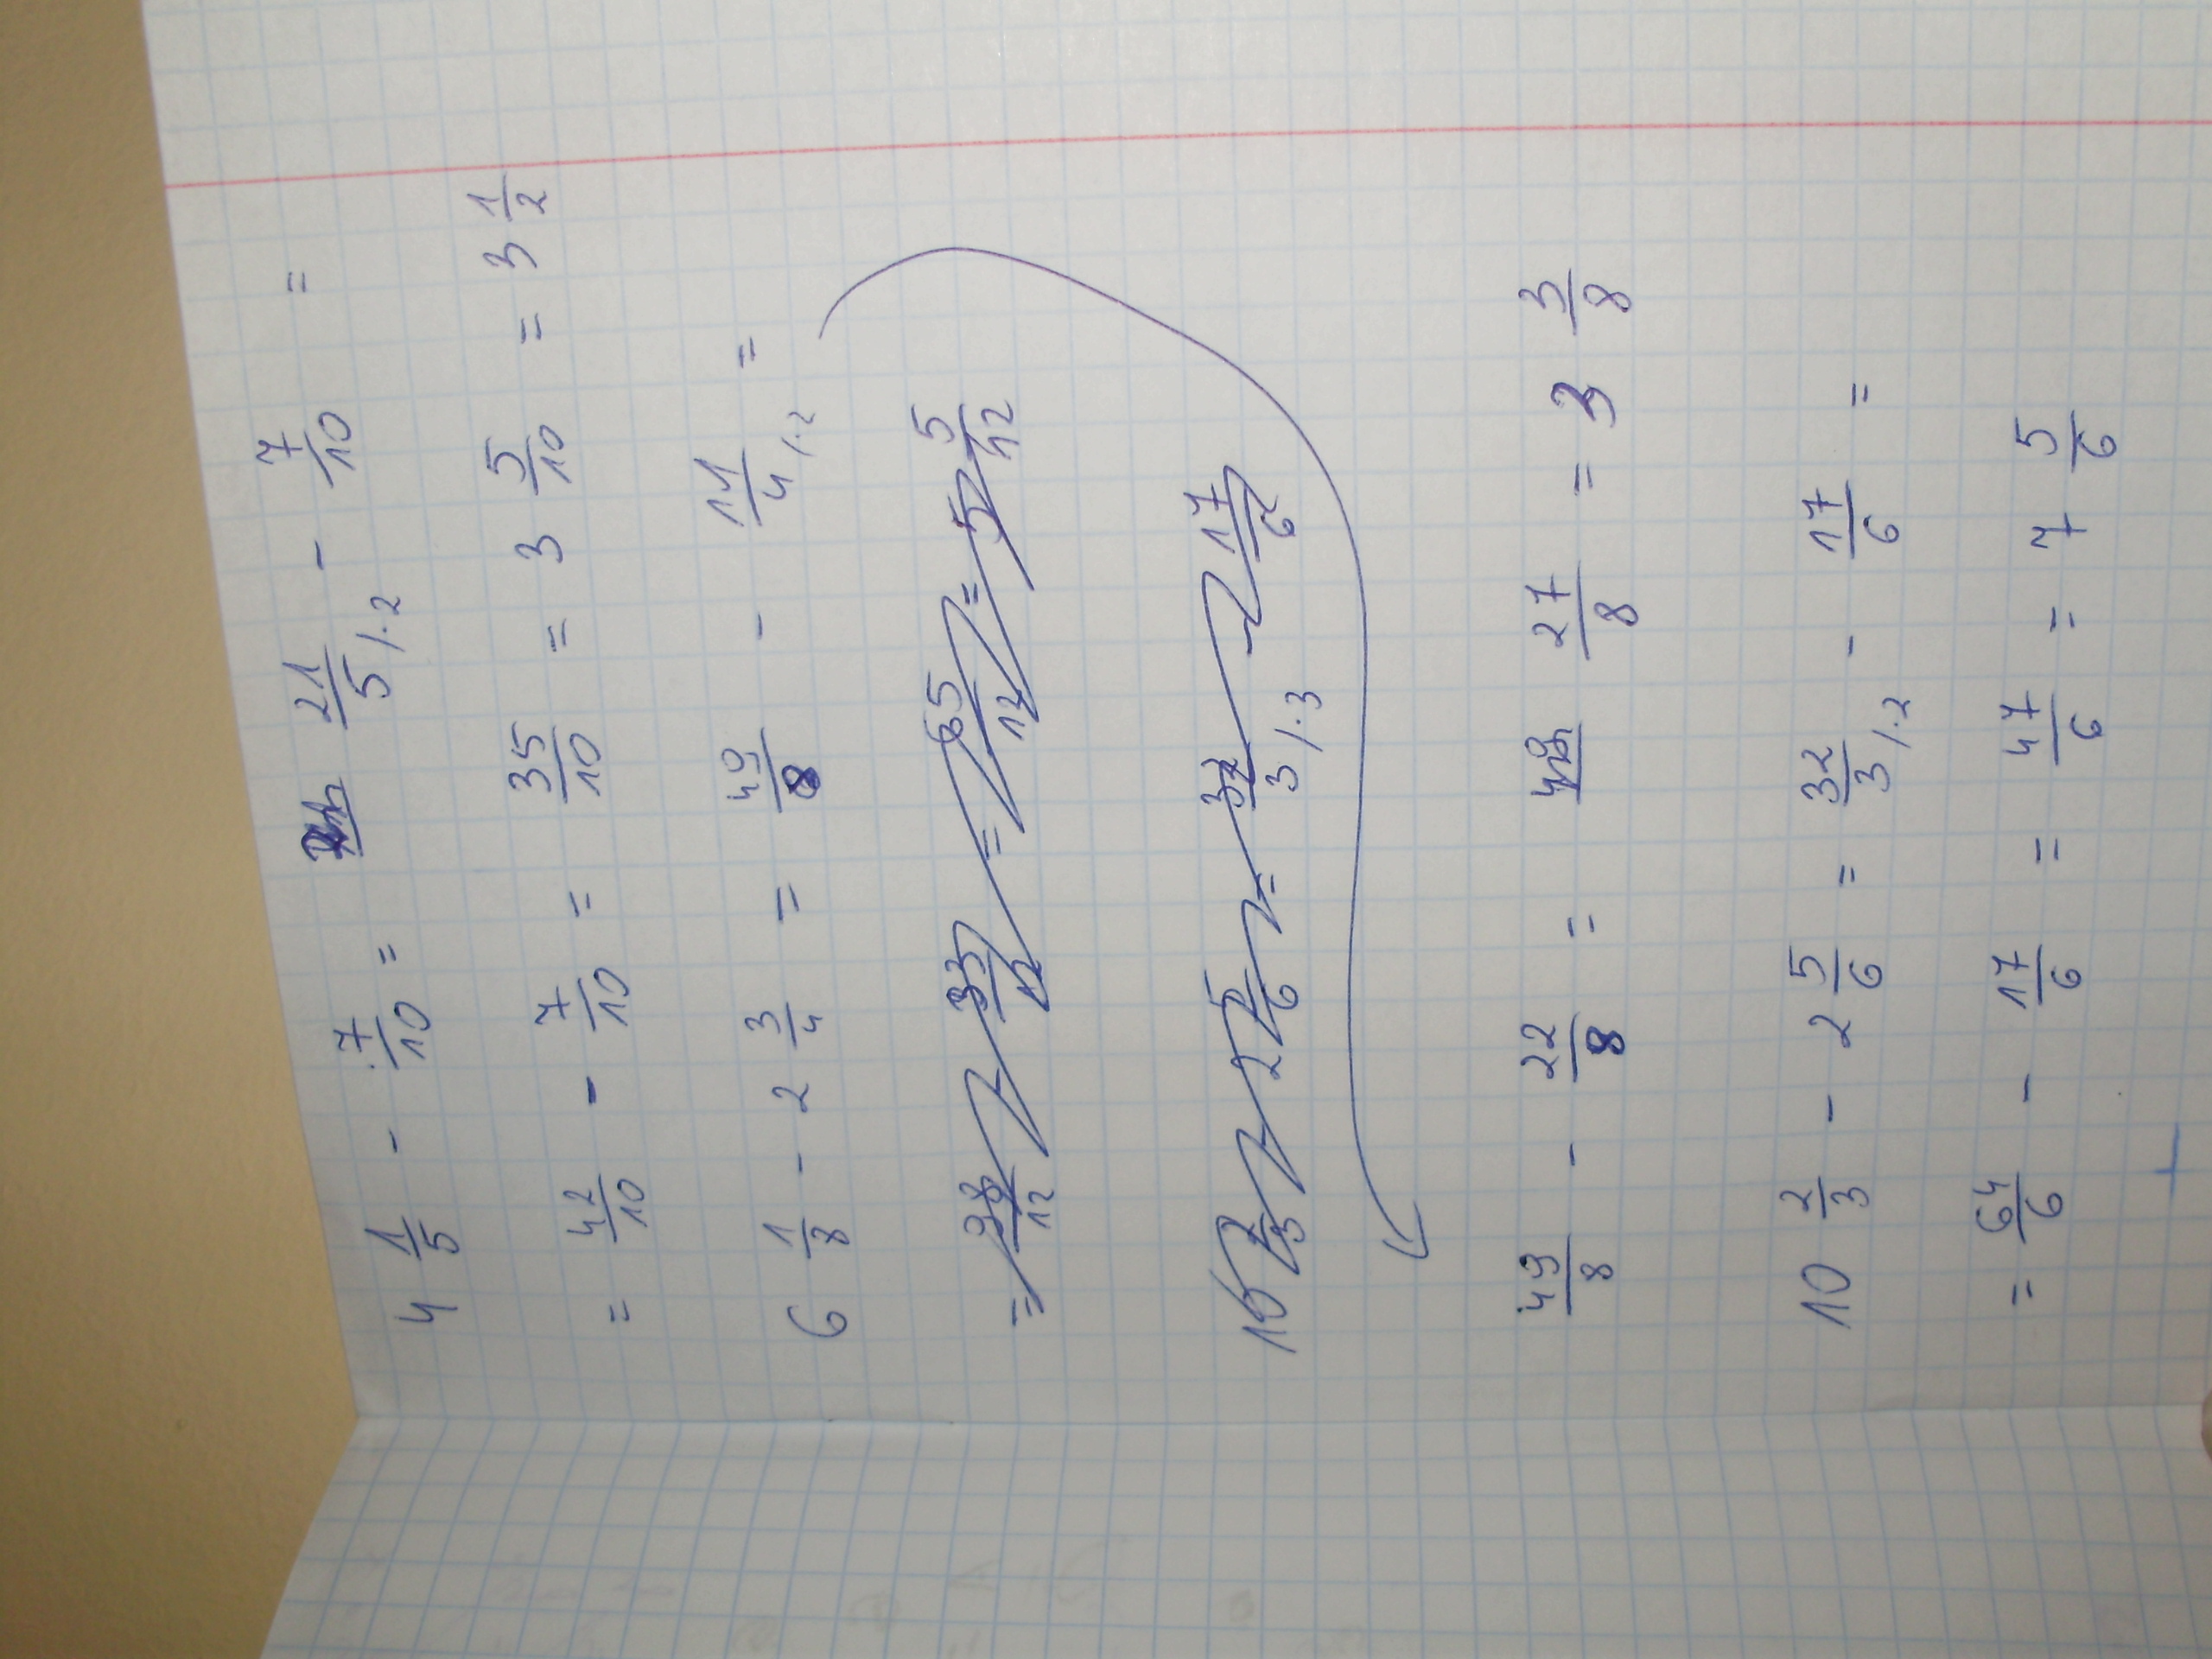 4 1/5 - 7/10 = 21/5 /·2 - 7/10 =
= 42/10 - 7/10 = 35/10 = 3 5/10 = 3 1/2
6 1/8 - 2 3/4 = 49/8 - 11/4 /·2 =
= 98/12 - 33/12 = 65/12 = 5 5/12
10 2/3 - 2 5/6 = 32/3 /·3 - 17/6
49/8 - 22/8 = 27/8 = 3 3/8
10 2/3 - 2 5/6 = 32/3 /·2 - 17/6 =
= 64/6 - 17/6 = 47/6 = 7 5/6